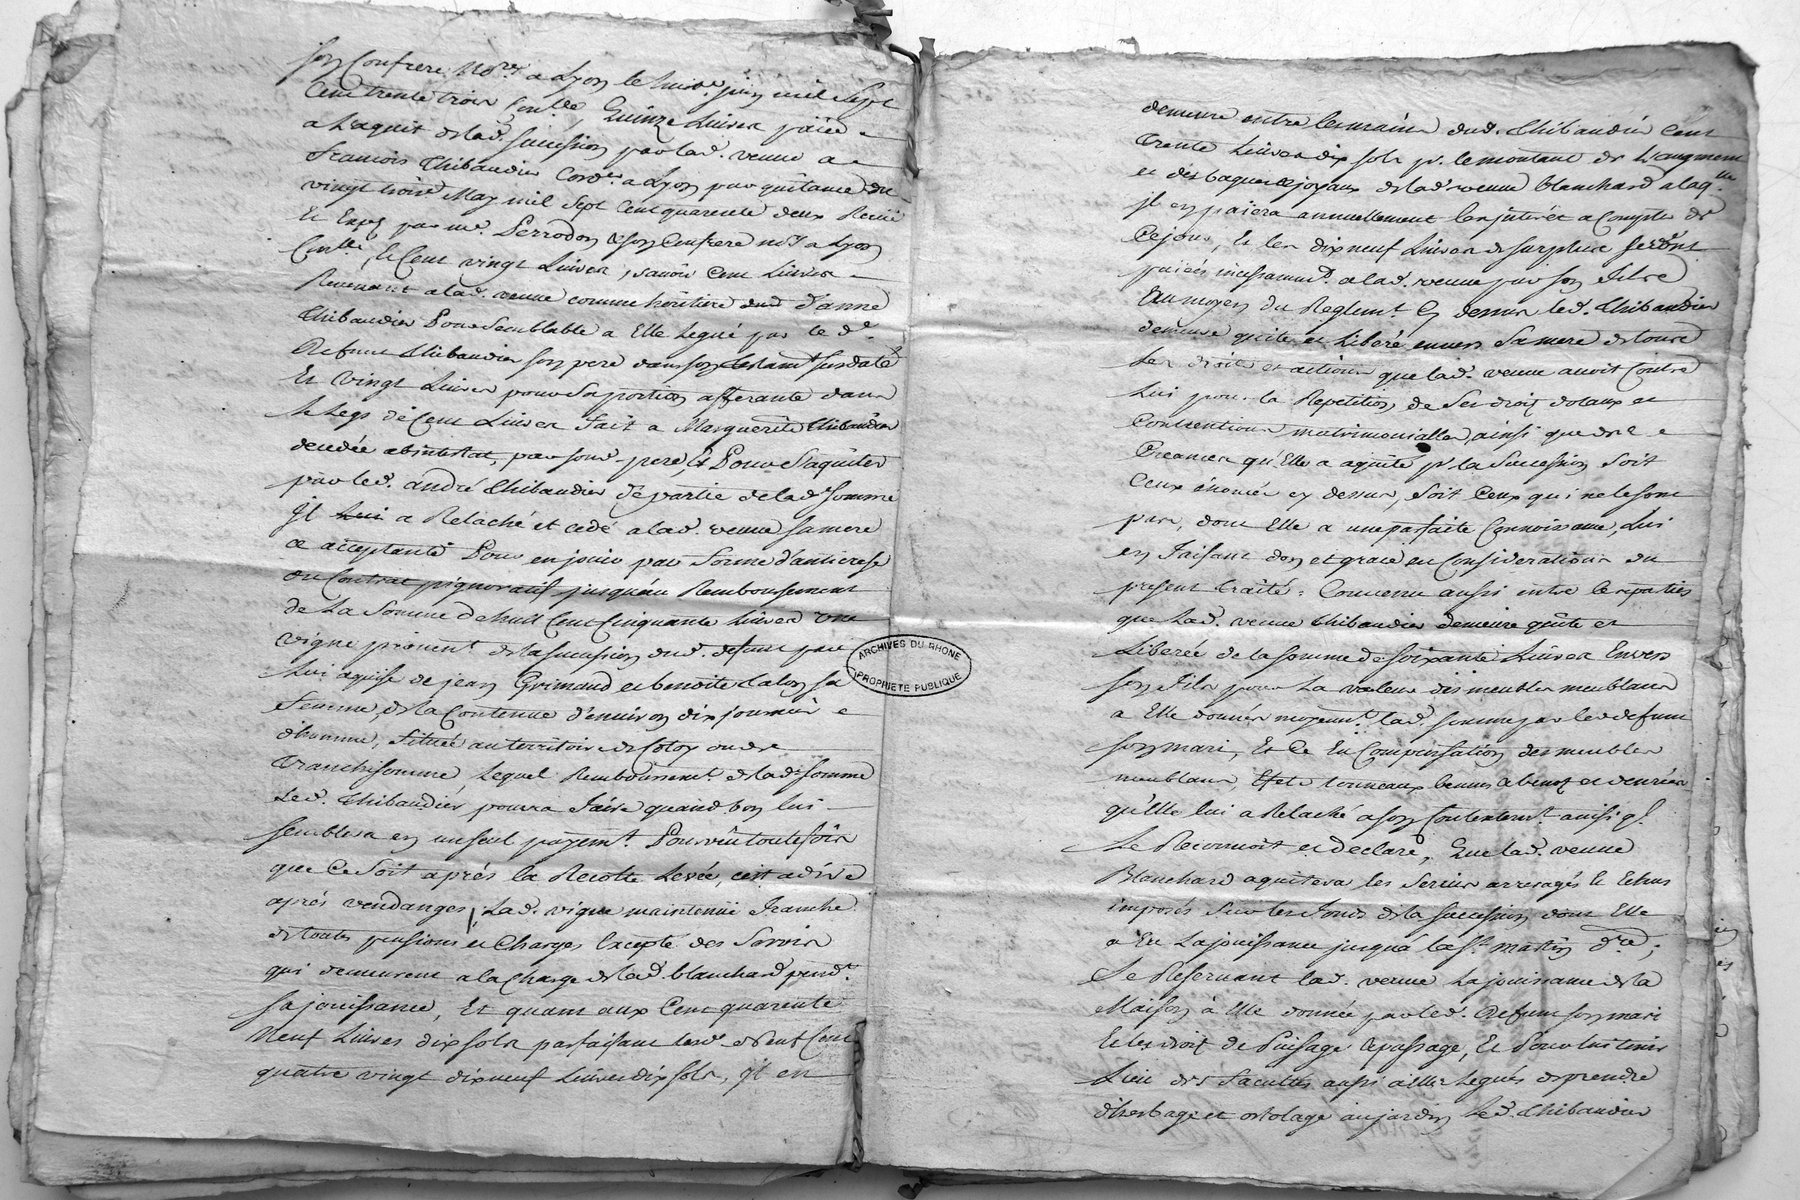 son Confrere No.re a Lyon le huit.e juin mil Sept
Cent trente trois Con.llé, Quinze Livres païée
a L'aquit de lad. Succession par lad. veuve a
francois Thibaudier Cord.er a Lyon par quitance du
vingt trois May mil Sept Cent quarente deux Reçüe
Et Exp.ée par m.e Perrodon & son Confrere no.re a Lyon
Con.llé, le Cent vingt Livres, savoir Cent Livres
Revenant a lad. veuve comme héritiere dud d'anne
Thibaudier Pour Semblable a Elle Legué par le d.
defunt Thibaudier son pere dans son testam.t susdaté
Et vingt Livres pour sa portion afferante dans
le Legs de Cent Livres fait a Marguerite Thibaudier
decedée abintestat, par sond. pere, Et Pour S'aquiter
par led. andré Thibaudier de partie de lad. Somme
Il lui a Relaché et cedé a lad. veuve sa mere
ce acceptante Pour en jouir par forme d'anticrese
ou Contrat pignoratif jusqu'au Remboursement
de La Somme de huit Cent Cinquante Livres une
vigne provent. de la succession dud. defunt par
Lui aquise de jean Grimaud et benoite Calon sa
femme, de la Contenue d'environ dix journées
d'homme, située au territoire de Coloy ou de
Tranchisomme, Lequel Remboursem.t de lad. somme
Led. Thibaudier pourra faire quand bon lui
semblera en un seul payem.t Pourvû toutefois
que Ce soit aprés la Recolte Levée, c'est a dire
aprés vendanges, Lad. vigne maintenüe franche
de toutes pensions et Charges Excepté des Servis
qui demeurent a la charge de lad. blanchard pend.t
sa jouissance, Et quant aux Cent quarente
neuf Livres dix sols parfaisant lesd. Neuf Cent
quatre vingt dixneuf Livres dix sols, il en
demeure entre les mains dud. Thibaudier Cent
trente Livres dix sols p.r le montant de L'augment
et des bagues & joyaux de lad. veuve blanchard a laq.lle
il en païera annuellement les intérêt a Compter de
Ce jour, Et les dix neuf Livres de surplus seront
païés incessamm.t a lad. veuve par son fils
Au moyen du Reglem.t Cy dessus led. Thibaudier
demeure quitte et Libéré envers Sa mere de tous
les droit et actions que lad. veuve avoit Contre
Lui pour la Repetition de Ses droits dotaux et
Conventions matrimonialles, ainsi que des
Creances qu'Elle a aquité p.r la Succession Soit
Ceux énoncés cy dessus, soit Ceux qui ne le sont
pas, dont Elle a une parfaite Connoissance, Lui
en faisant don et grace en Considerations du
present traité; Convenu aussi entre les parties
que Lad. veuve Thibaudier demeure quite et
Liberée de la somme de soixante Livres Envers
son fils pour La valeur des meubles meublans
a Elle donnés moyen.t lad. somme par led. defunt
son mari, Et Ce En Compensation des meubles
meublans, Effets tonneaux bennes abenots et denrées
qu'Elle lui a Relaché a son Contentem.t ainsi q.l
Le Reconnoit et declare, Que lad. veuve
Blanchard aquitera les Servis arreragés et Echus
imposés sur les fonds de la Succession dont Elle
a Eu La jouissance jusqu'a la S.t martin d.re;
Se Reservant lad. veuve La jouissance de la
Maison à Elle donnée par led. defunt son mari
Et les droits de Puisage & passage, Et Pour lui tenir
Lieu des facultés aussi a Elle Leguées de prendre
d'herbage et ortolage au jardin Led. Thibaudier
ARCHIVES DU RHONE
PROPRIETE PUBLIQUE